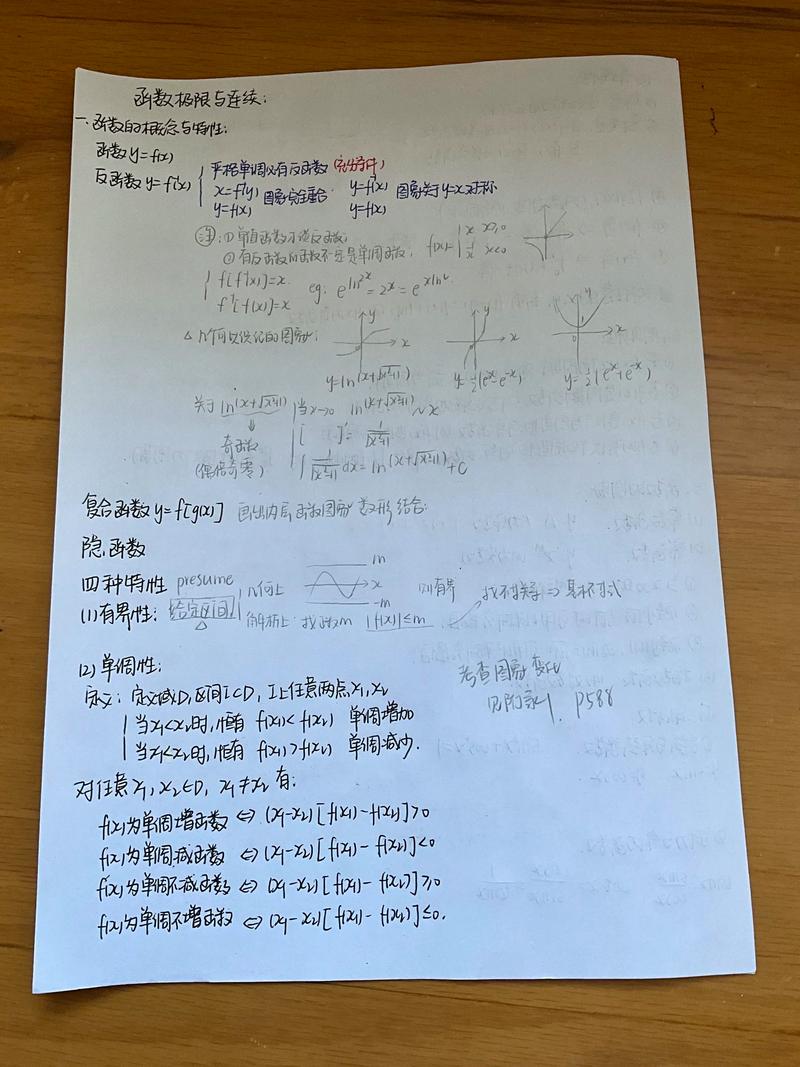 函数极限与连续:
一.函数的概念与特性:
函数y=f(x)
反函数y=f⁻¹(x) 严格单调必有反函数 (充分条件)
x=f⁻¹(y) 图象完全重合. y=f⁻¹(x) 图象关于y=x对称
y=f(x) y=f(x)
注:① 单值函数不谈反函数;
② 有反函数的函数不一定是单调函数, f(x)={x x≥0
1/x x<0
f[f⁻¹(x)]=x. eg: e^{ln2^x}=2^x=e^{xln2}
f⁻¹[f(x)]=x
△几何 的图象: y x x y x
y=ln(x+√(x²+1)) y=½(e^x-e^{-x}) y=½(e^x+e^{-x})
关于 ln(x+√(x²+1)) 当x→0 ln(x+√(x²+1)) ~x
↓ [ ]'=1/√(x²+1)
奇函数
(偶倍奇零) ∫1/√(x²+1) dx=ln(x+√(x²+1))+C
复合函数 y=f[g(x)] 画出内层函数图象 数形结合.
隐函数
四种特性 presume 几何上 m x -m 则有界 找不等关系⇒基本不等式
(1)有界性: 给定区间 解析上: 找正数m |f(x)|≤m
△
(2)单调性:
定义: 定义域D,区间I⊂D, I上任意两点x₁,x₂
当x₁<x₂时,恒有 f(x₁)<f(x₂) 单调增加
当x₁<x₂时,恒有 f(x₁)>f(x₂) 单调减少.
考查图象变化
见附录1. P588
对任意x₁,x₂∈D, x₁≠x₂ 有:
f(x)为单调增函数 ⇔ (x₁-x₂)[f(x₁)-f(x₂)]>0
f(x)为单调减函数 ⇔ (x₁-x₂)[f(x₁)-f(x₂)]<0
f(x)为单调不减函数 ⇔ (x₁-x₂)[f(x₁)-f(x₂)]≥0
f(x)为单调不增函数 ⇔ (x₁-x₂)[f(x₁)-f(x₂)]≤0.